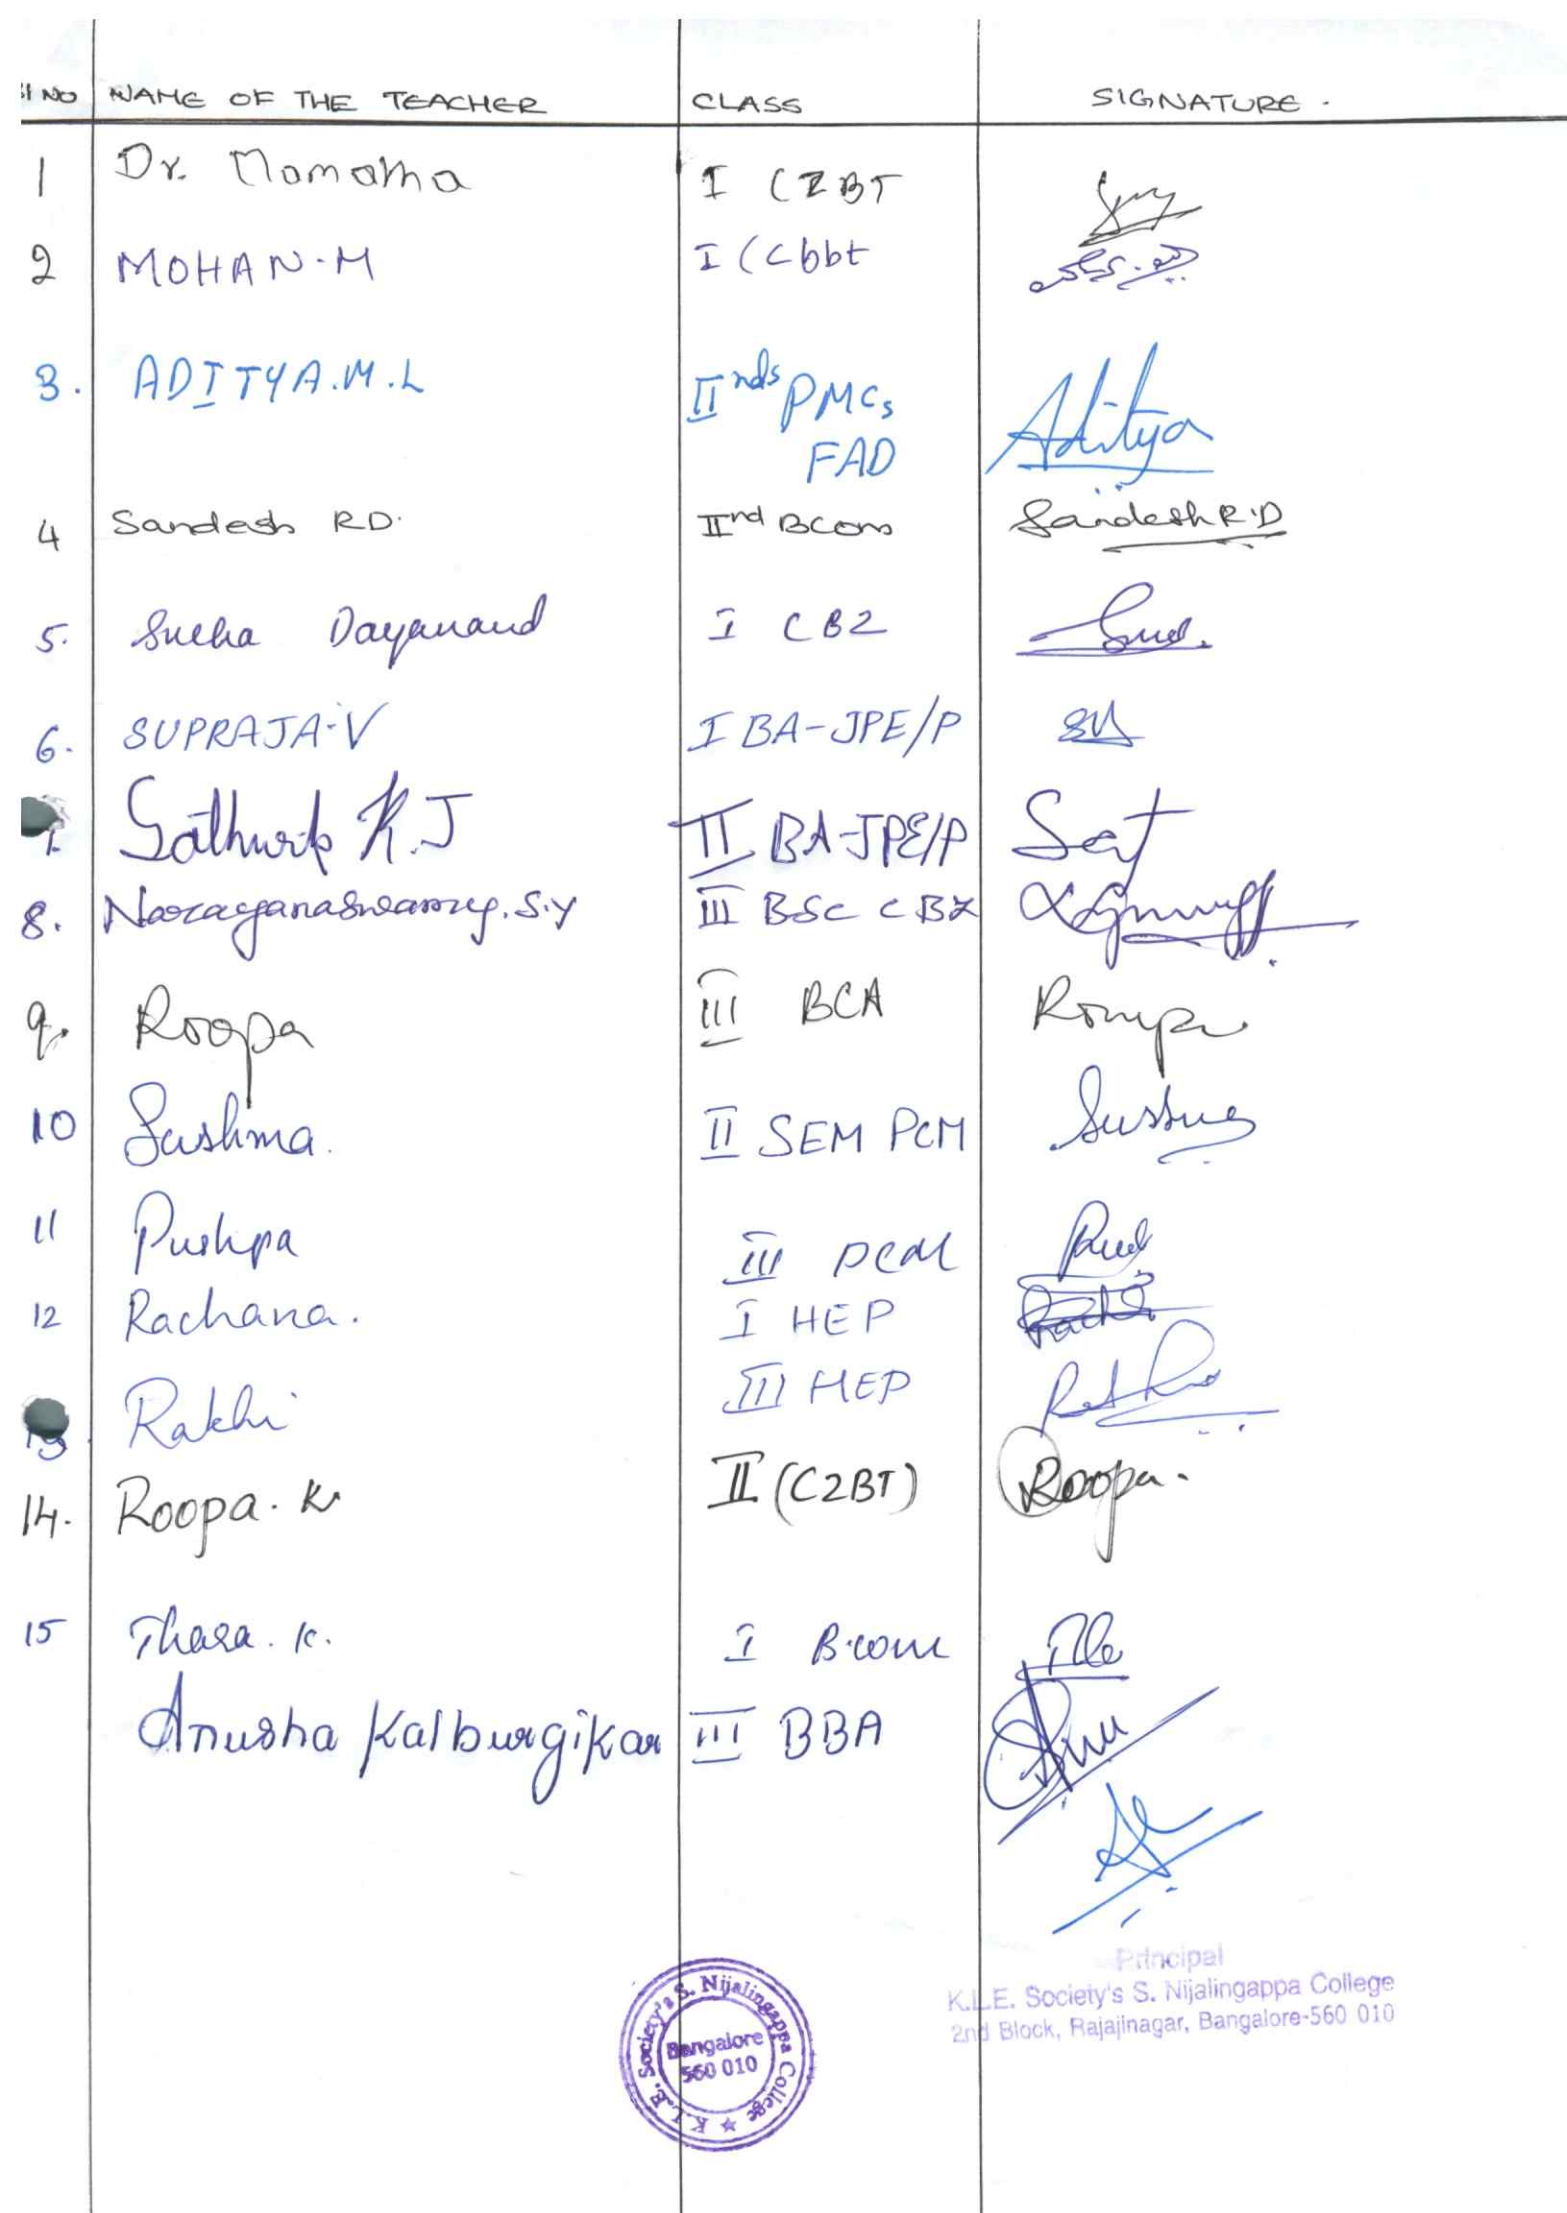 Sl NO NAME OF THE TEACHER CLASS SIGNATURE.
1 Dr. Mamatha I CZBT
2 MOHAN.M I (Cbbt
3. ADITYA.M.L II nds PMCs Aditya
FAD
4 Sandesh RD. IInd BCom Sandesh R.D
5. Sneha Dayanand I CBZ
6. SUPRAJA.V I BA-JPE/P SV
7. Sathwik K.J II BA-JPE/P Sat
8. Narayanaswamy.S.Y III BSC CBZ
9. Roopa III BCA Roopa
10 Sushma. II SEM PCM Sushma
11 Pushpa III PCM
12 Rachana. I HEP
13. Rakhi III HEP
14. Roopa. K II (CZBT) Roopa.
15 Thara. K. I B.com
Anusha Kalburgikar III BBA
Principal
K.L.E. Society's S. Nijalingappa College
2nd Block, Rajajinagar, Bangalore-560 010
K.L.E. Society's S. Nijalingappa College
Bangalore
560 010